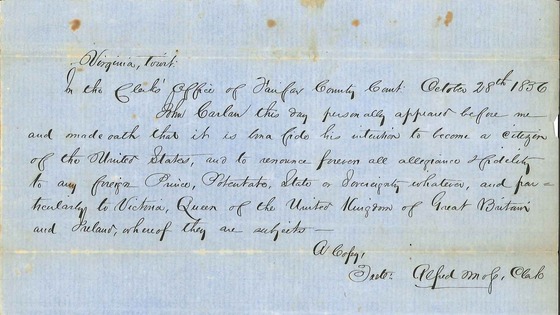 Virginia, towit:
In the Clerk's Office of Fairfax County Court October 28th 1856
John Carlan this day personally appeared before me
and made oath that it is bona fide his intention to become a citizen
of the United States, and to renounce forever all allegiance & fidelity
to any foreign Prince, Potentate, State or Sovereignty whatever, and par=
ticularly to Victoria, Queen of the United Kingdom of Great Britain
and Ireland, whereof they are subjects
A Copy,
Teste: Alfred Moss, Clerk